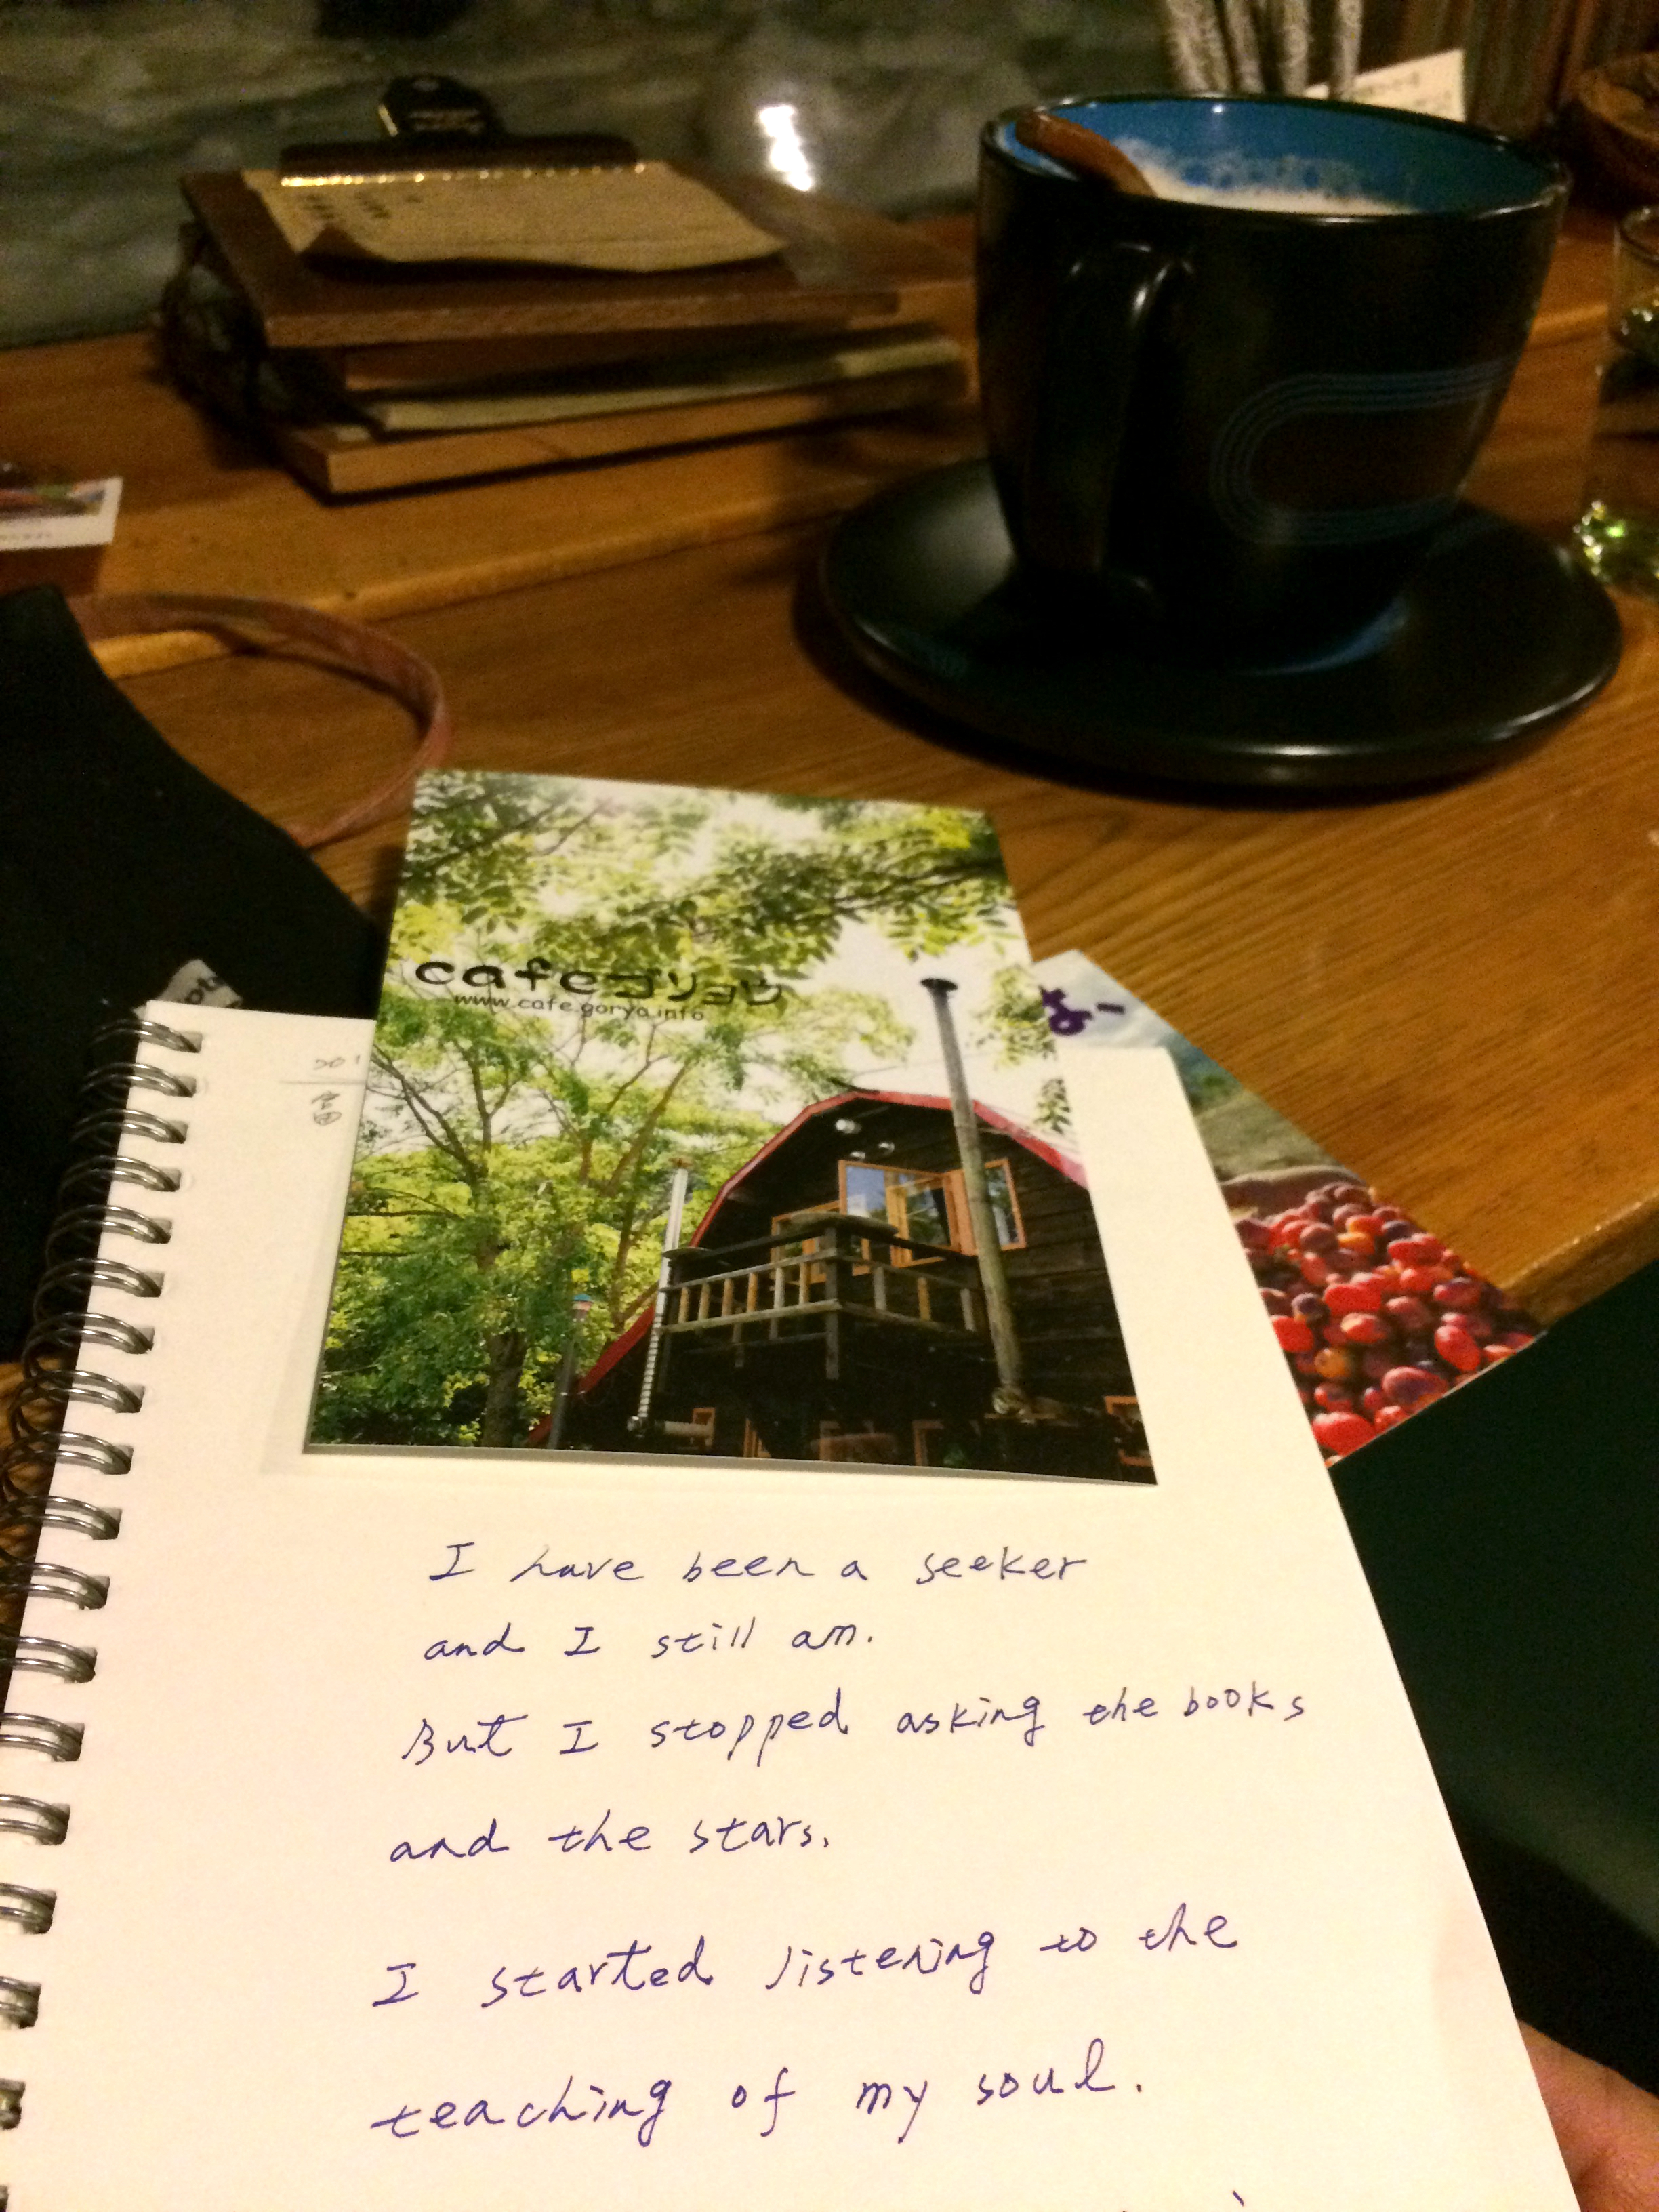 cafeゴリョウ
www.cafe.goryo.info
201
富
I have been a seeker
and I still am.
But I stopped asking the books
and the stars.
I started listening to the
teaching of my soul.